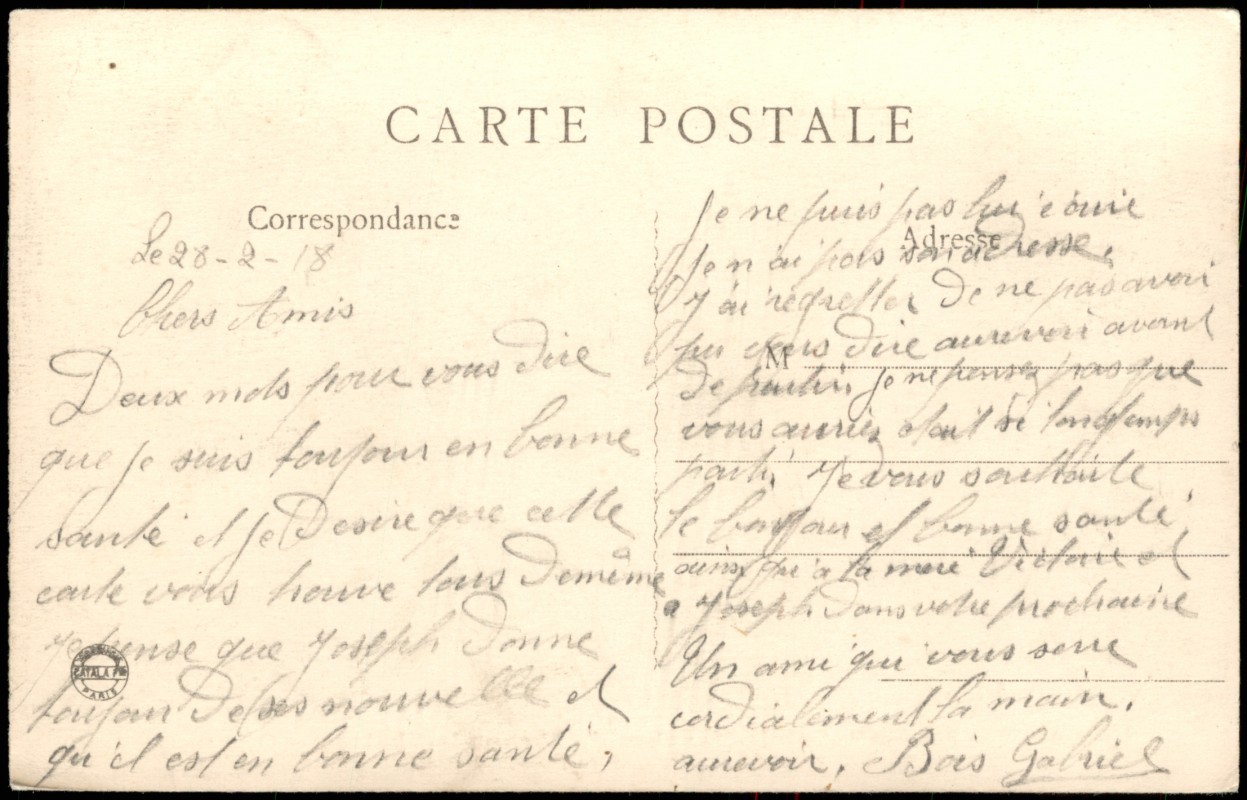 CARTE POSTALE
Correspondance
Le 28-2-18
Chers Amis
Deux mots pour vous dire
que je suis toujour en bonne
santé et je Desire que cette
carte vous trouve tous Demême
Je pense que Joseph Donne
toujour De ses nouvelle et
qu'il est en bonne santé,
CATALA
PARIS
Je ne puis pas lui écrire
Adresse
Je n'ai pas son adresse,
J'ai regretter De ne pas avoir
pu vous Dire aurevoir avant
M
De partir, je ne pensez pas que
vous auriez était si longtemps
parti, Je vous souhaite
le bonjour et bonne santé,
ainsi qu'a la mère Victoire et
a Joseph Dans votre prochaine
Un ami qui vous serre
cordialement la main,
aurevoir, Bois Gabriel